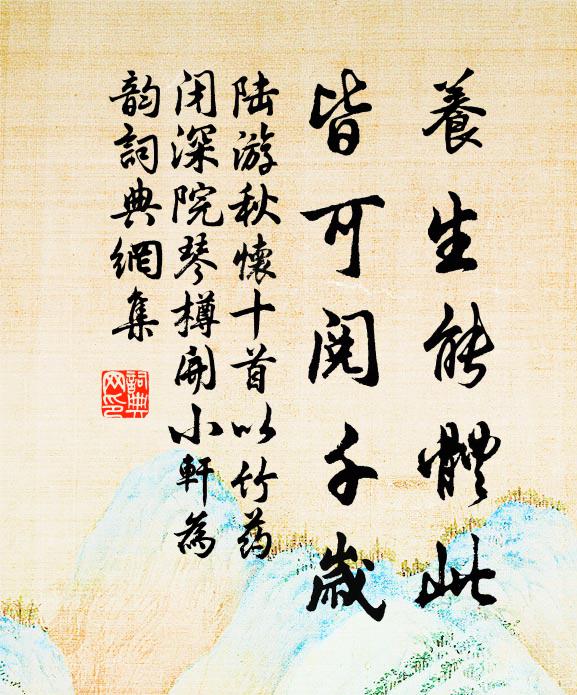 養生能體此
皆可閱千歲
陆游秋懷十首以竹药
闭深院琴樽開小軒為
韵詞典網集
詞典
网印